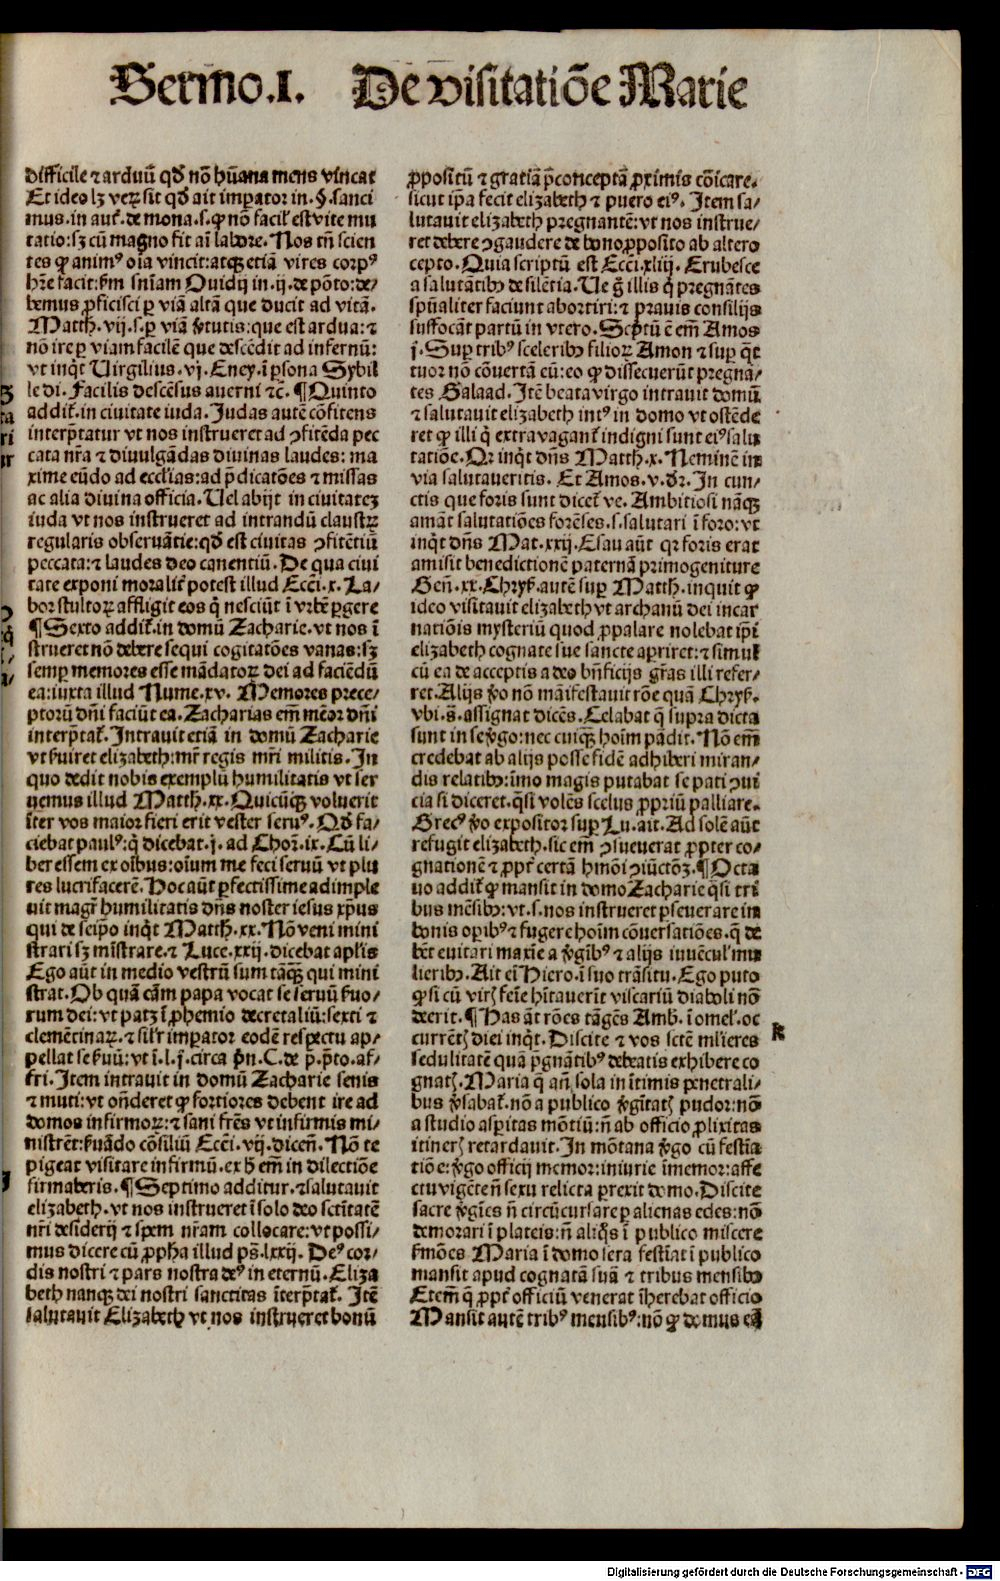 Sermo.I. De visitatiõe Marie
difficile ⁊ arduũ qđ nõ hũana mens vincat
Et ideo lꝫ veꝝ sit qđ ait imꝑator in.§.sanci
mus.in aut̃.de mona.s.ꝙ nõ facil̃ est vite mu
tatio:sꝫ cũ magno fit ai̅ labore. Nos tñ scien
tes ꝙ animꝰ oi̅a vincit:atqꝫ etiã vires corpꝭ
hr̃e facit:ẞm sni̅am Ouidij in.ij.de põto:de/
bemus ꝓficisci ꝑ viã altã que ducit ad vitã.
Matth.vij.s.ꝑ viã v̾tutis:que est ardua:⁊
nõ ire ꝑ viam facilẽ que descẽdit ad infernũ:
vt inqͥt Uirgilius.vj.Eney.ĩ ꝑsona Sybil
le di. Facilis descẽsus auerni ⁊c̃. ¶Quinto
addit̃.in ciuitate iuda. Judas autẽ cõfitens
interp̃tatur vt nos instrueret ad ꝯfitẽda pec
cata nr̃a ⁊ diuulgãdas diuinas laudes: ma
xime eũdo ad eccl̃ias:ad p̃dicatões ⁊ missas
ac alia diuina officia. Uel abijt in ciuitateꝫ
iuda vt nos instrueret ad intrandũ claustꝝ
regularis obseruãtie:qđ est ciuitas ꝯfitẽtiũ
peccata:⁊ laudes deo canentiũ. De qua ciui
tate exponi moralit̃ potest illud Ecci̅.x. La/
bor stultoꝝ affligit eos q̇ nesciũt ĩ vrbẽ ꝑgere
¶Sexto addit̃.in domũ Zacharie.vt nos ĩ
strueret nõ debere sequi cogitatões vanas:sꝫ
semꝑ memores esse mãdatoꝝ dei ad faciẽdũ
ea:iuxta illud Nume.xv. Memores prece/
ptorũ dñi faciũt ea. Zacharias em̃ mẽor dñi
interp̃tat̃. Intrauit etiã in domũ Zacharie
vt ẞuiret elizabeth:mr̃ regis mr̃i militis. In
quo dedit nobis exemplũ humilitatis vt ser
uemus illud Matth.xx. Quicũqꝫ voluerit
ĩter vos maior fieri erit vester seruꝰ. Qđ fa/
ciebat paulꝰ:q̇ dicebat.j.ad Chor̃.ix. Cũ li/
ber essem ex oĩbus:oĩum me feci seruũ vt plu
res lucrifacerẽ. Hoc aũt ꝑfectissime adimple
uit magr̃ humilitatis dñs noster iesus xp̃us
qui de seip̃o inqͥt Matth.xx. Nõ veni mini
strari sꝫ mĩstrare.⁊ Luce.xxij.dicebat apl̃is
Ego aũt in medio vestrũ sum tãqꝫ qui mini
strat. Ob quã cãm papa vocat se seruũ ẞuo/
rum dei:vt patꝫ ĩ ꝓhemio decretaliũ:sexti ⁊
clemẽtinaꝝ.⁊ sil̃r imꝑator eodẽ respectu ap/
pellat se ẞuũ:vt ĩ.l.j.circa pñ.C.de p̃.p̃to.af/
fri. Item intrauit in domũ Zacharie senis
⁊ muti:vt oñderet ꝙ fortiores debent ire ad
domos infirmoꝝ:⁊ sani fr̃es vt infirmis mi/
nistrẽt:ẞuãdo cõsiliũ Ecci̅.vij.diceñ. Nõ te
pigeat visitare infirmũ.ex h̾ em̃ in dilectiõe
firmaberis. ¶Septimo additur.⁊ salutauit
elizabeth.vt nos instrueret ĩ solo deo sctĩtatẽ
nr̃i desiderij ⁊ spem nr̃am collocare:vt possi/
mus dicere cũ ꝓpha illud ps̃.lxxij. Deꝰ cor/
dis nostri ⁊ pars nostra deꝰ in eternũ. Eliza
beth nanqꝫ dei nostri sanctitas ĩterp̃tat̃. Itẽ
salutauit Elizabeth vt nos instrueret bonũ
ꝓpositũ ⁊ gratiã p̃conceptã ꝓximis cõicare.
sicut ip̃a fecit elizabeth ⁊ puero eiꝰ. Item sa/
lutauit elizabeth pregnantẽ:vt nos instrue/
ret debere ꝯgaudere de bono ꝓposito ab altero
cepto. Quia scriptũ est Ecci̅.xliij. Erubesce
a salutãtibꝰ de silẽtia. Ue g̾ illis q̇ pregnãtes
spñaliter faciunt abortiri:⁊ prauis consilijs
suffocãt partũ in vtero. Scptũ ẽ em̃ Amos
j. Suꝑ tribꝰ sceleribꝰ filioꝝ Amon ⁊ suꝑ q̃t
tuor nõ cõuertã eũ:eo ꝙ dissecuerũt pregnã/
tes Galaad. Itẽ beata virgo intrauit domũ
⁊ salutauit elizabeth intꝰ in domo vt ostẽde
ret ꝙ illi q̇ extra vagant̃ indigni sunt eiꝰ salu
tatiõe. Qr̃ inqͥt dñs Matth.x. Neminẽ in
via salutaueritis. Et Amos.v.dr̃. In cun/
ctis que foris sunt dicet̃ ve. Ambitiosi nãqꝫ
amãt salutatiões forẽses.s.salutari ĩ foro:vt
inqͥt dñs Mat.xxij. Esau aũt qr̃ foris erat
amisit benedictionẽ paternã primogeniture
Geñ.xx. Chrys̃.autẽ suꝑ Matth.inquit ꝙ
ideo visitauit elizabeth vt archanũ dei incar
natiõis mysteriũ quod ꝓpalare nolebat ip̃i
elizabeth cognate sue sancte aꝑiret:⁊ simul
cũ ea de acceptis a deo bñficijs gr̃as illi refer/
ret. Alijs v̾o nõ mãifestauit rõe quã Chrys̃.
vbi.s̃.assignat dicẽs. Celabat q̃ supra dicta
sunt in se v̾go:nec cuiqꝫ hoĩm pãdit. Nõ em̃
credebat ab alijs posse fidẽ adhiberi miran/
dis relatibꝰ:ĩmo magis putabat se pati ꝯui
cia si diceret.q̃si volẽs scelus ꝓpriũ palliare.
Grecꝰ v̾o expositor suꝑ Lu.ait. Ad solẽ aũt
refugit elizabeth.sic em̃ ꝯsueuerat ꝓpter co/
gnationẽ ⁊ ꝓpt̃ certã hmõi ꝯiũctõꝫ. ¶Octa
uo addit̃ ꝙ mansit in domo Zacharie q̃si tri
bus mẽsibꝰ:vt.s.nos instrueret ꝑseuerare in
bonis oꝑibꝰ ⁊ fugere hoĩm cõuersatiões.q̃ de
bẽt euitari maxĩe a v̾gĩbꝰ ⁊ alijs iuuẽcul̃ mu
lieribꝰ. Ait ei̅ Hiero.ĩ suo trãsitu. Ego puto
ꝙ si cũ virꝭ feĩe hĩtauerĩt viscariũ diaboli nõ
deerit. ¶Has ãt rões tãgẽs Amb̃.ĩ omel̃.oc
currẽtꝭ diei inqͥt. Discite ⁊ vos sctẽ ml̃ieres
sedulitatẽ quã p̃gnãtibꝰ debeatis exhibere co
gnatꝭ. Maria q̃ añ sola in ĩtimis penetrali/
bus v̾sabat̃.nõ a publico v̾gĩtatꝭ pudor:nõ
a studio asꝑitas mõtiũ:ñ ab officio ꝓlixitas
itinerꝭ retardauit. In mõtana v̾go cũ festĩa
tiõe:v̾go officij memor:iniurie ĩmemor:affe
ctu vigẽte ñ sexu relicta ꝑrexit domo. Discite
sacre v̾gĩes ñ circũcursare ꝑ alienas edes:nõ
demorari ĩ plateis:ñ aliq̃s ĩ publico miscere
ẞmões. Maria ĩ domo sera festĩat ĩ publico
mansit apud cognatã suã ⁊ tribus mensibꝰ
Etem̃ q̃ ꝓpt̃ officiũ venerat ĩherebat officio
Mansit autẽ tribꝰ mensibꝰ:nõ ꝙ domus eã
k
Digitalisierung gefördert durch die Deutsche Forschungsgemeinschaft - DFG